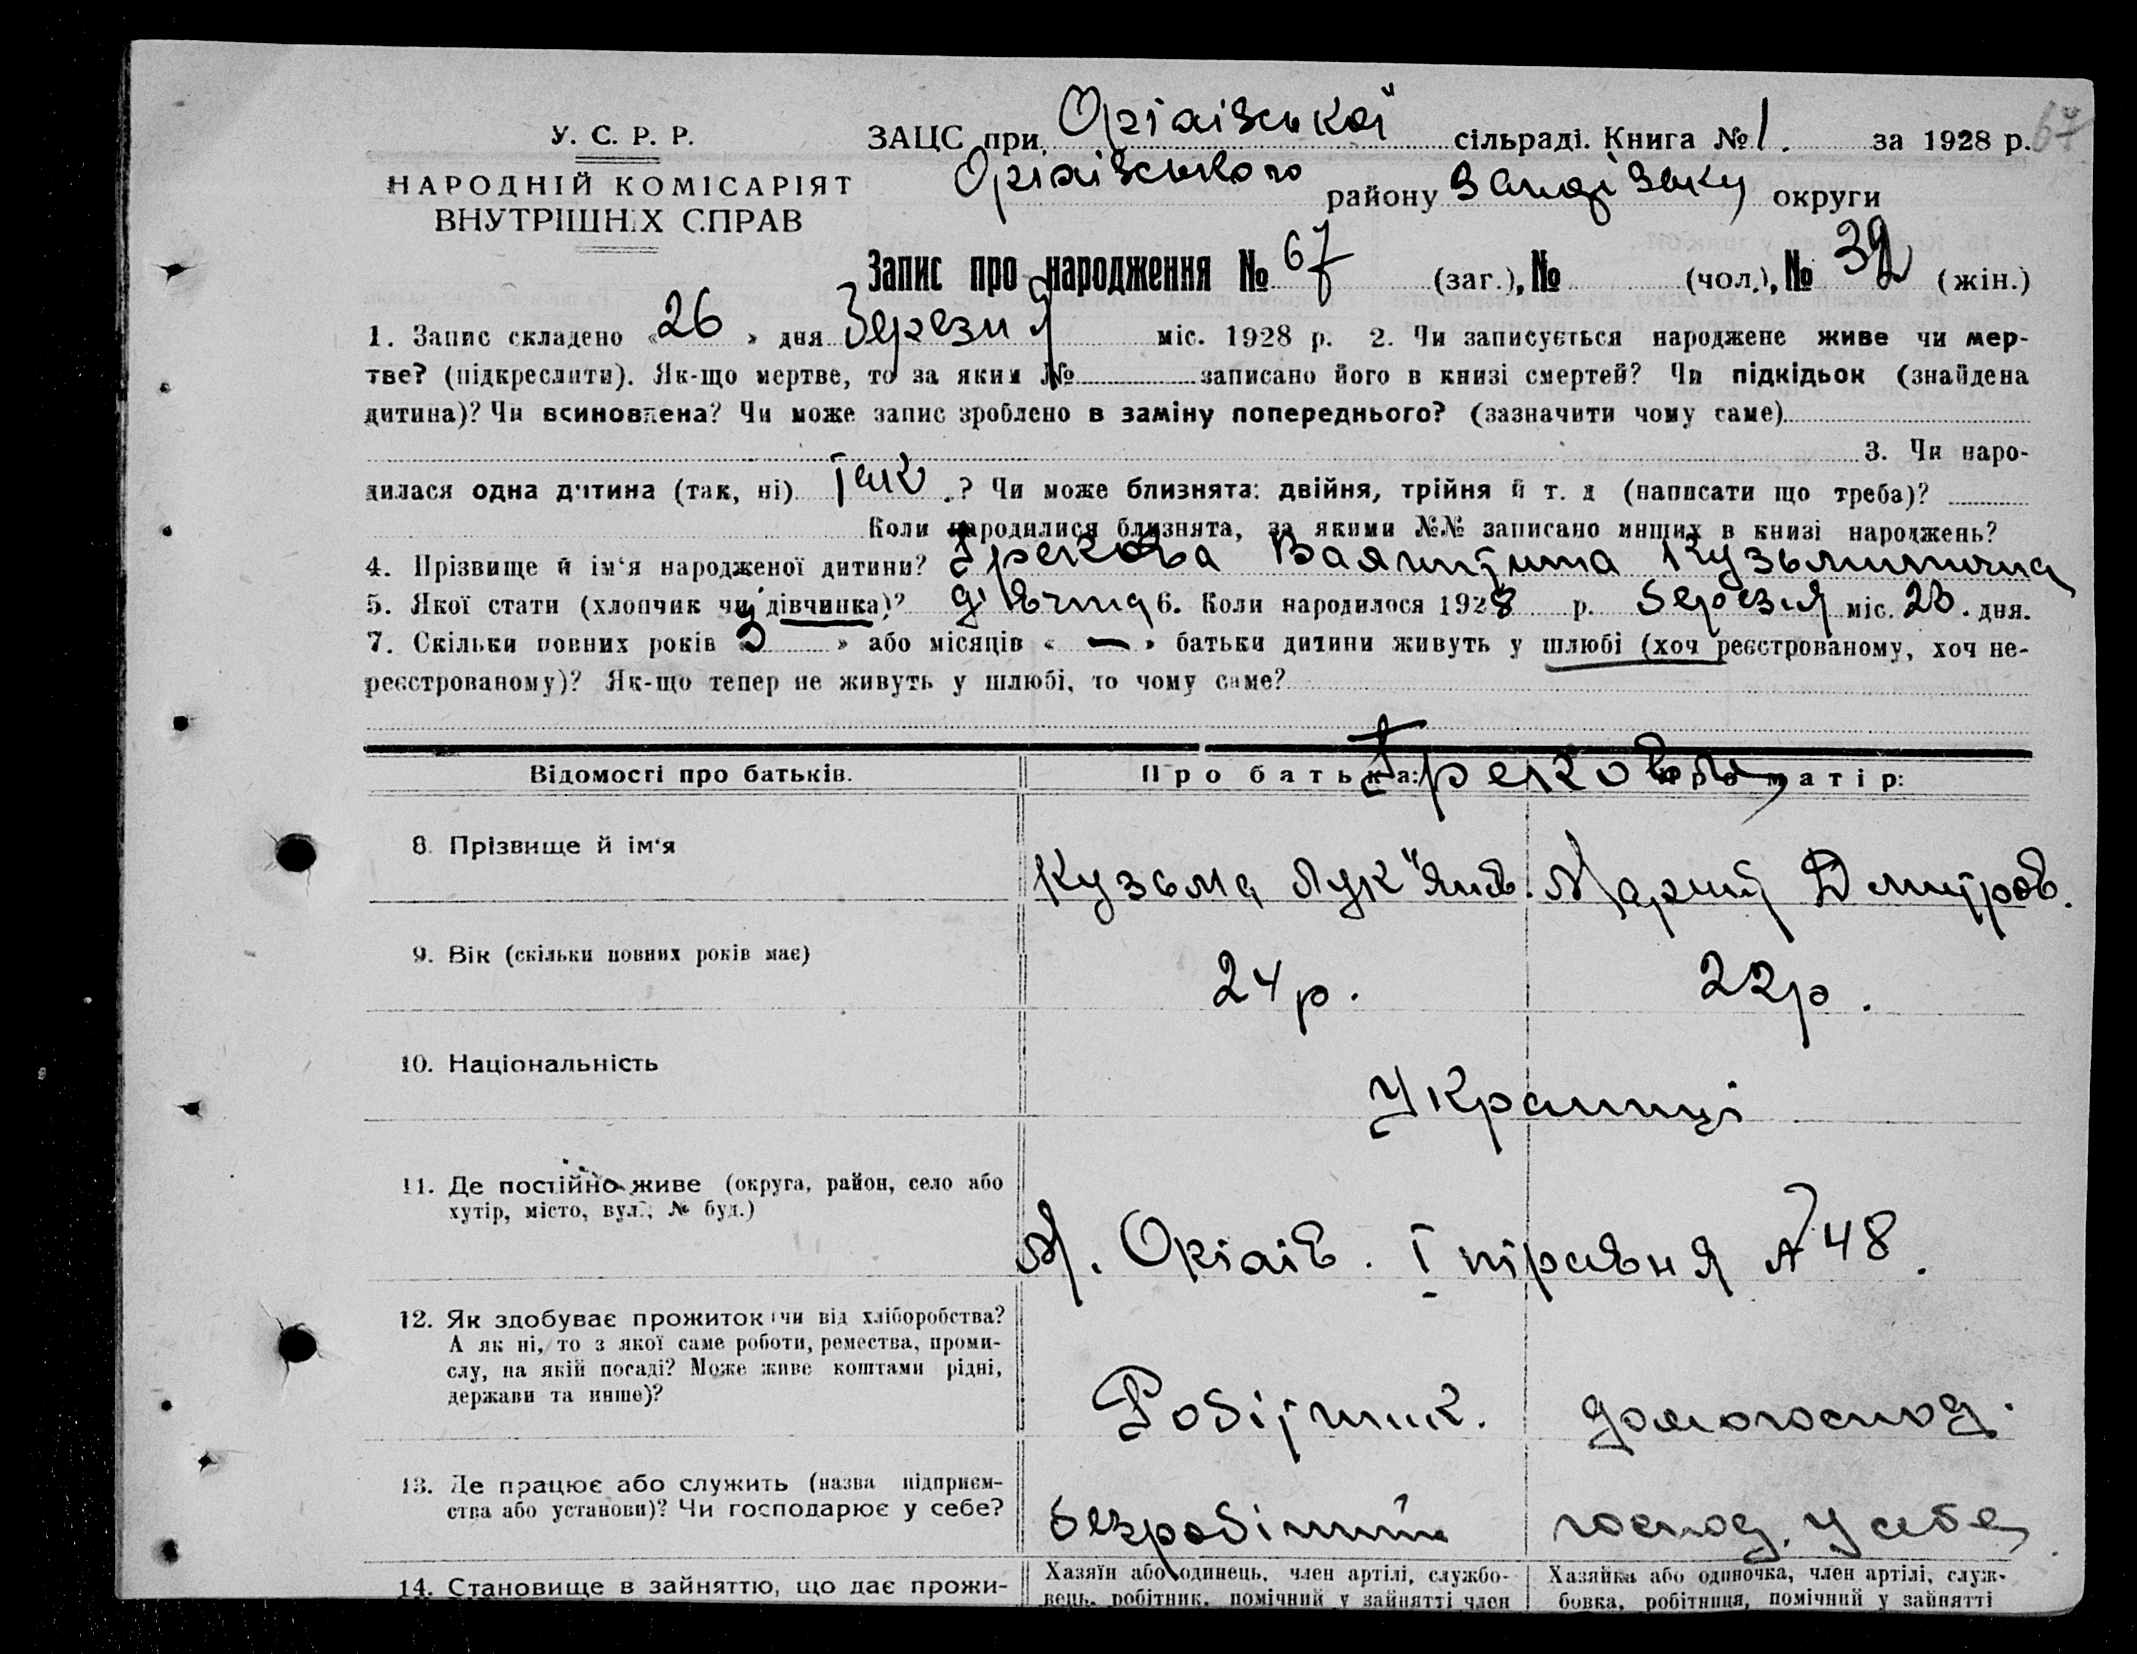 67
У. С. Р. Р.
НАРОДНІЙ КОМІСАРІЯТ
ВНУТРІШНІХ СПРАВ
ЗАЦС при Оріхівської сільраді. Книга № 1. за 1928 р.
Оріхівського району Запоріжжу округи
Запис про народження № 67 (заг.), № (чол.), № 32 (жін.)
1. Запис складено « 26 » дня Березня міс. 1928 р. 2. Чи записується народжене живе чи мер-
тве? (підкреслити). Як-що мертве, то за яким № записано його в книзі смертей? Чи підкідьок (знайдена
дитина)? Чи всиновлена? Чи може запис зроблено в заміну попереднього? (зазначити чому саме)
3. Чи наро-
дилася одна дитина (так, ні) Так ? Чи може близнята: двійня, трійня й т. д (написати що треба)?
Коли народилися близнята, за якими №№ записано инших в книзі народжень?
4. Прізвище й ім'я народженої дитини? Грекова Валентина Кузьминична
5. Якої стати (хлопчик чи дівчинка)? дівчина 6. Коли народилося 1928 р. березня міс. 23. дня.
7. Скільки повних років « » або місяців « — » батьки дитини живуть у шлюбі (хоч реєстрованому, хоч не-
реєстрованому)? Як-що тепер не живуть у шлюбі, то чому саме?
Відомості про батьків. Про батька: матір:
Грекови
8. Прізвище й ім'я Кузьма Лук"янов. Марий Дмитров.
9. Вік (скільки повних років має) 24 р. 22 р.
10. Національність Украинці
11. Де постійно живе (округа, район, село або
хутір, місто, вул., № буд.)
М. Оріхів. І 48.
12. Як здобуває прожиток: чи від хліборобства?
А як ні, то з якої саме роботи, ремества, проми-
слу, на якій посаді? Може живе коштами рідні,
держави та инше)?
Робітник. домогоспод.
13. Де працює або служить (назва підприєм-
ства або установи)? Чи господарює у себе?
безробітний господ. у себе
14. Становище в зайняттю, що дає прожи-
Хазяїн або одинець, член артілі, службо-
вець, робітник, помічний у зайнятті член
Хазяйка або одиночка, член артілі, служ-
бовка, робітниця, помічний у зайнятті